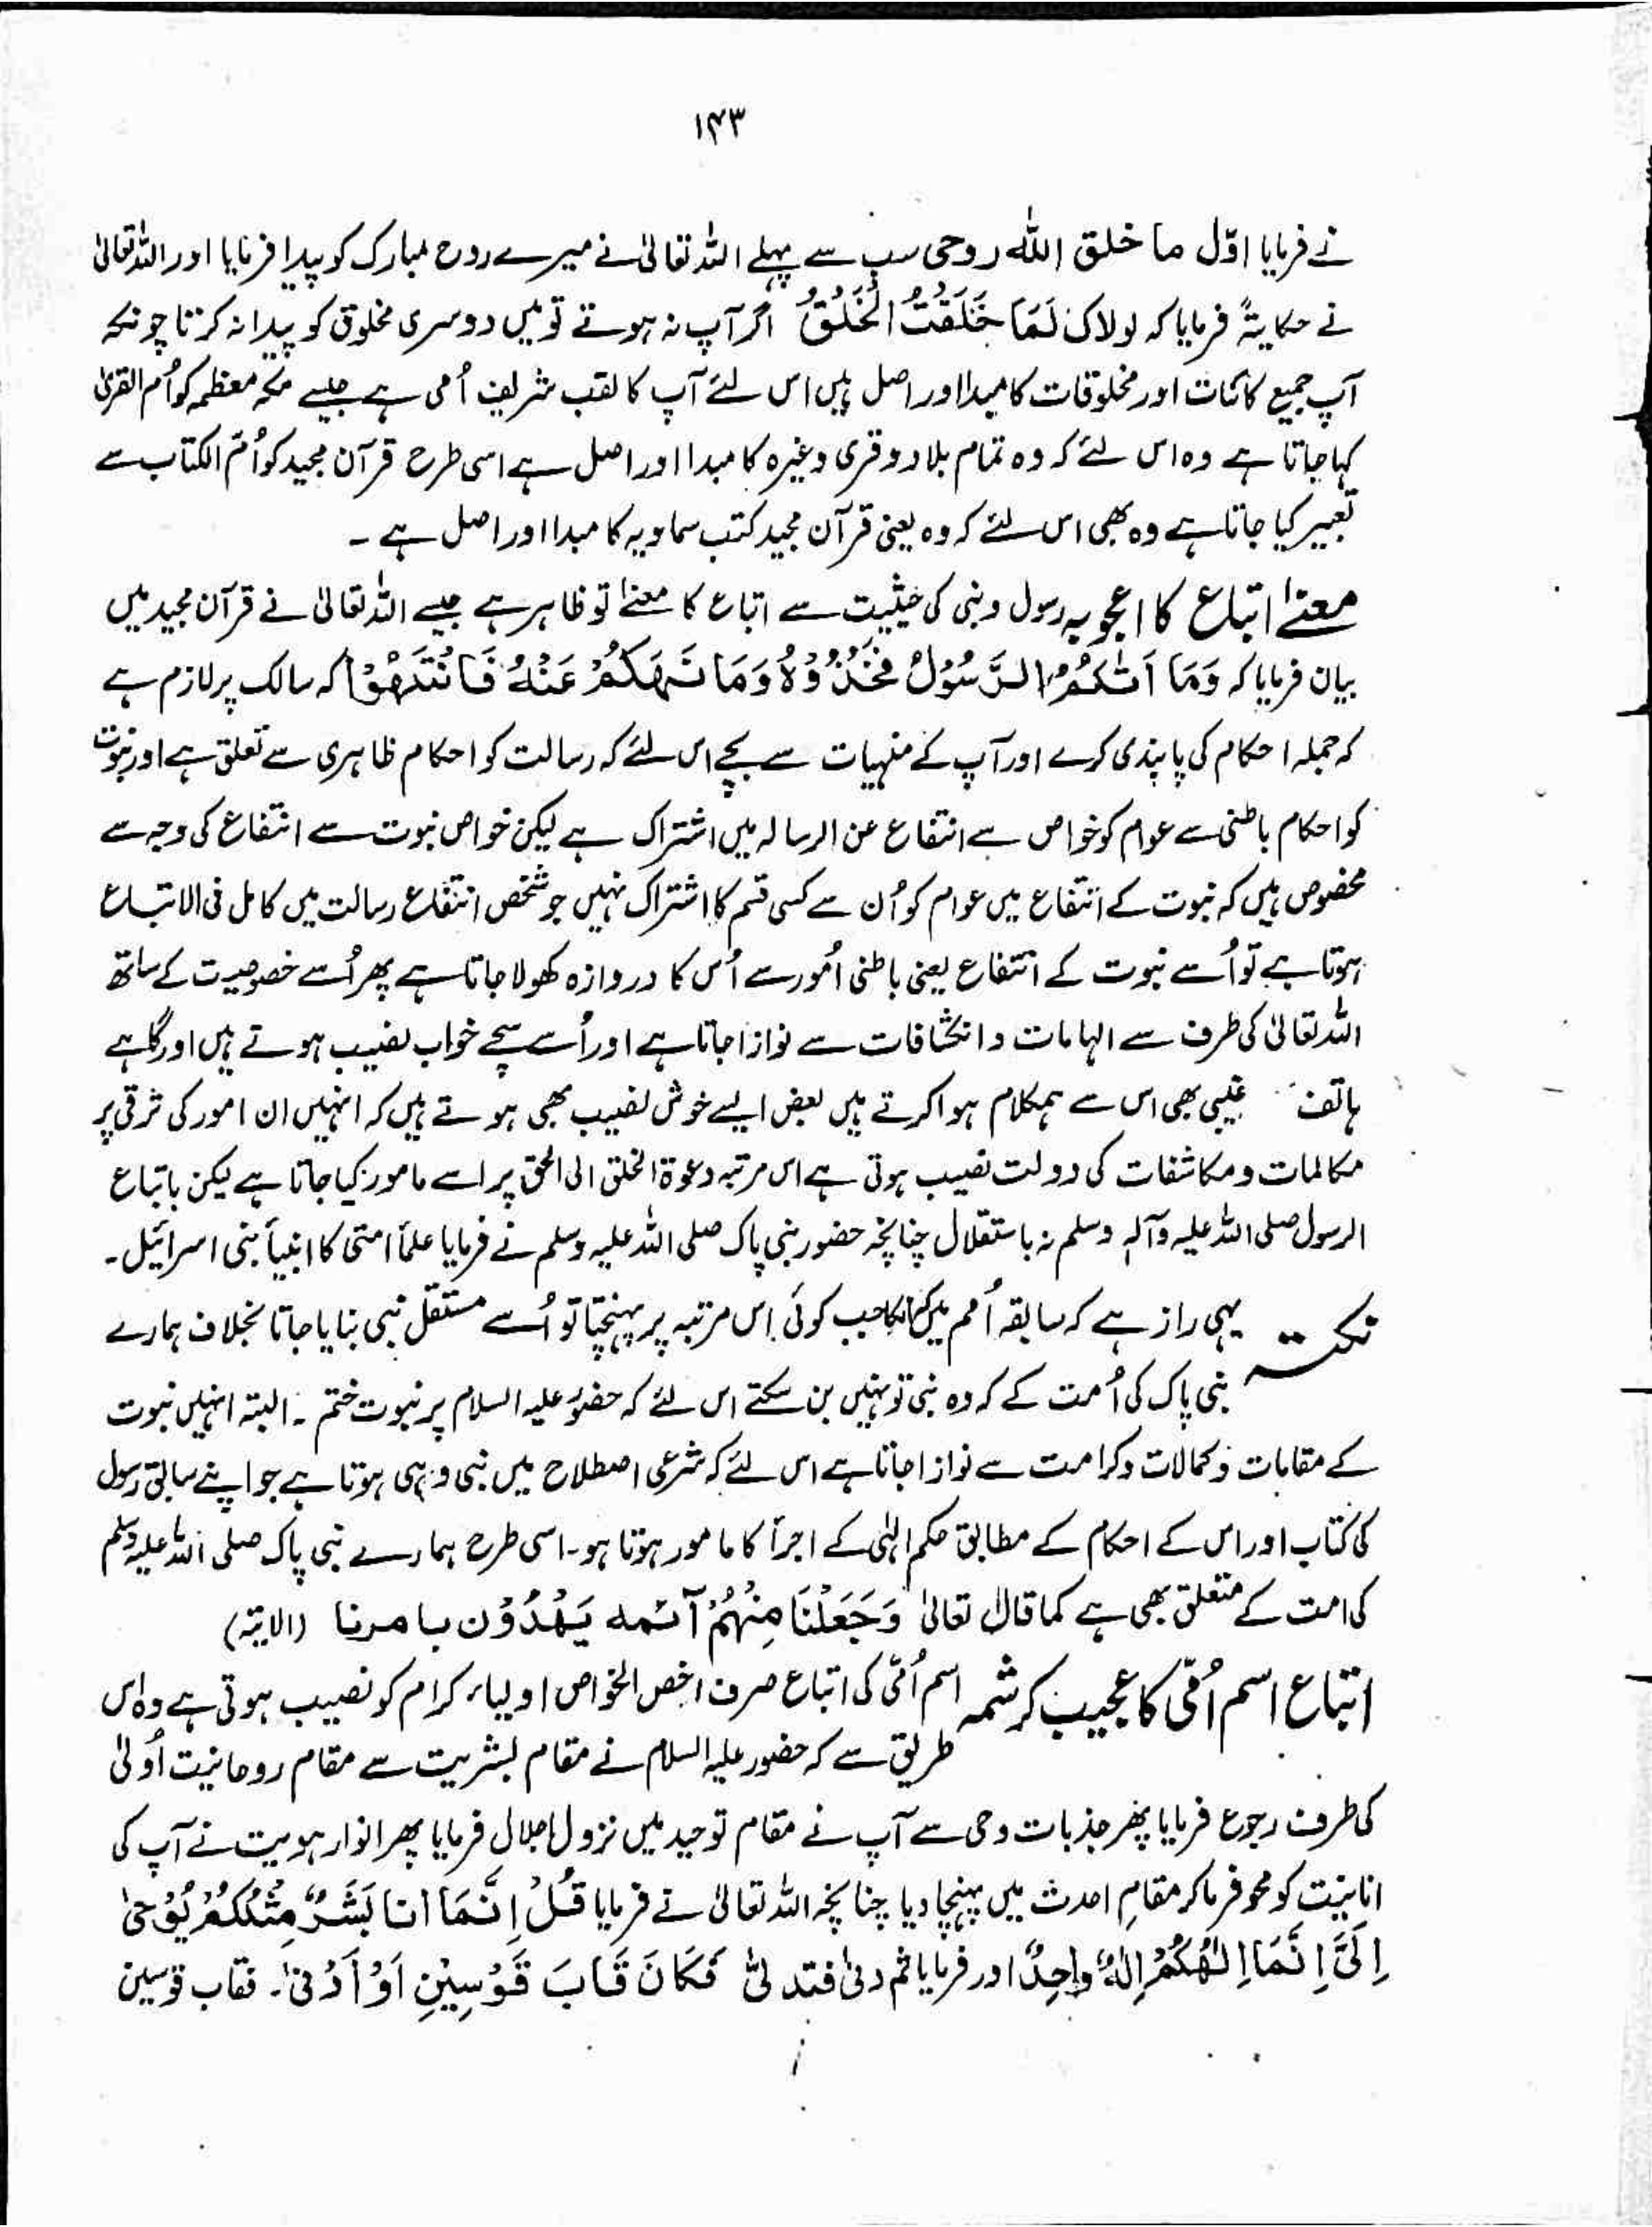 ۱۴۳
نے فرمایا اوّل ما خلق اللہ روحی سب سے پہلے اللہ تعالیٰ نے میرے روح مبارک کو پیدا فرمایا اور اللہ تعالیٰ
نے حکایۃً فرمایا کہ لولاک لَمَا خَلَقْتُ الْخَلْقُ اگر آپ نہ ہوتے تو میں دوسری مخلوق کو پیدا نہ کرتا چونکہ
آپ جمیع کائنات اور مخلوقات کا مبدا اور اصل ہیں اس لئے آپ کا لقب شریف اُمی ہے جیسے مکہ معظمہ کو اُم القریٰ
کہا جاتا ہے وہ اس لئے کہ وہ تمام بلاد و قری وغیرہ کا مبدا اور اصل ہے اسی طرح قرآن مجید کو اُمّ الکتاب سے
تعبیر کیا جاتا ہے وہ بھی اس لئے کہ وہ یعنی قرآن مجید کتب سماویہ کا مبدا اور اصل ہے ۔
معنےٰ اتباع کا اعجوبہ رسول و نبی کی حیثیت سے اتباع کا معنےٰ تو ظاہر ہے جیسے اللہ تعالیٰ نے قرآن مجید میں
بیان فرمایا کہ وَمَا اَتٰکُمُ الرَّسُوْلُ فَخُذُوْہُ وَمَا نَہٰکُمْ عَنْہُ فَانْتَہُوْا کہ سالک پر لازم ہے
کہ جملہ احکام کی پابندی کرے اور آپ کے منہیات سے بچے اس لئے کہ رسالت کو احکام ظاہری سے تعلق ہے اور نبوت
کو احکام باطنی سے عوام کو خواص سے انتفاع عن الرسالہ میں اشتراک ہے لیکن خواص نبوت سے انتفاع کی وجہ سے
مخصوص ہیں کہ نبوت کے انتفاع میں عوام کو اُن سے کسی قسم کا اشتراک نہیں جو شخص انتفاع رسالت میں کامل فی الاتباع
ہوتا ہے تو اُسے نبوت کے انتفاع یعنی باطنی اُمور سے اُس کا دروازہ کھولا جاتا ہے پھر اُسے خصوصیت کے ساتھ
اللہ تعالیٰ کی طرف سے الہامات و انکشافات سے نوازا جاتا ہے اور اُسے سچے خواب نصیب ہوتے ہیں اور گاہے
ہاتف غیبی بھی اس سے ہمکلام ہوا کرتے ہیں بعض ایسے خوش نصیب بھی ہوتے ہیں کہ انہیں ان امور کی ترقی پر
مکالمات و مکاشفات کی دولت نصیب ہوتی ہے اس مرتبہ دعوۃ الخلق الی الحق پر اسے مامور کیا جاتا ہے لیکن باتباع
الرسول صلی اللہ علیہ وآلہٖ وسلم نہ باستقلال چنانچہ حضور نبی پاک صلی اللہ علیہ وسلم نے فرمایا علمأ امتی کا انبیأ بنی اسرائیل ۔
نکتہ یہی راز ہے کہ سابقہ اُمم میں کا جب کوئی اس مرتبہ پر پہنچتا تو اُسے مستقل نبی بنایا جاتا بخلاف ہمارے
نبی پاک کی اُمت کے کہ وہ نبی تو نہیں بن سکتے اس لئے کہ حضور علیہ السلام پر نبوت ختم ۔ البتہ انہیں نبوت
کے مقامات و کمالات و کرامت سے نوازا جاتا ہے اس لئے کہ شرعی اصطلاح میں نبی وہی ہوتا ہے جو اپنے سابق رسول
کی کتاب اور اس کے احکام کے مطابق حکم الہٰی کے اجرأ کا مامور ہوتا ہو ۔ اسی طرح ہمارے نبی پاک صلی اللہ علیہ وسلم
کی امت کے متعلق بھی ہے کما قال تعالیٰ وَجَعَلْنَا مِنْہُمْ آئمہ یَہْدُوْن بامرنا (الایۃ)
اتباع اسم اُمّی کا عجیب کرشمہ اسم اُمّی کی اتباع صرف اخص الخواص اولیاء کرام کو نصیب ہوتی ہے وہ اس
طریق سے کہ حضور علیہ السلام نے مقام بشریت سے مقام روحانیت اُولیٰ
کی طرف رجوع فرمایا پھر جذبات وحی سے آپ نے مقام توحید میں نزول اجلال فرمایا پھر انوار ہویت نے آپ کی
انانیت کو محو فرما کر مقامِ احدث میں پہنچا دیا چنانچہ اللہ تعالیٰ نے فرمایا قُلْ اِنَّمَا انا بَشَرٌ مِّثْلُکُمْ یُوْحیٰ
اِلَیَّ اِنَّمَا اِلٰہُکُمْ اِلٰہٌ واحِدٌ اور فرمایا ثم دنیٰ فتدلیّٰ فَکَانَ قَابَ قَوْسِیْنِ اَوْ اَدْنیٰ ۔ فقاب قوسین